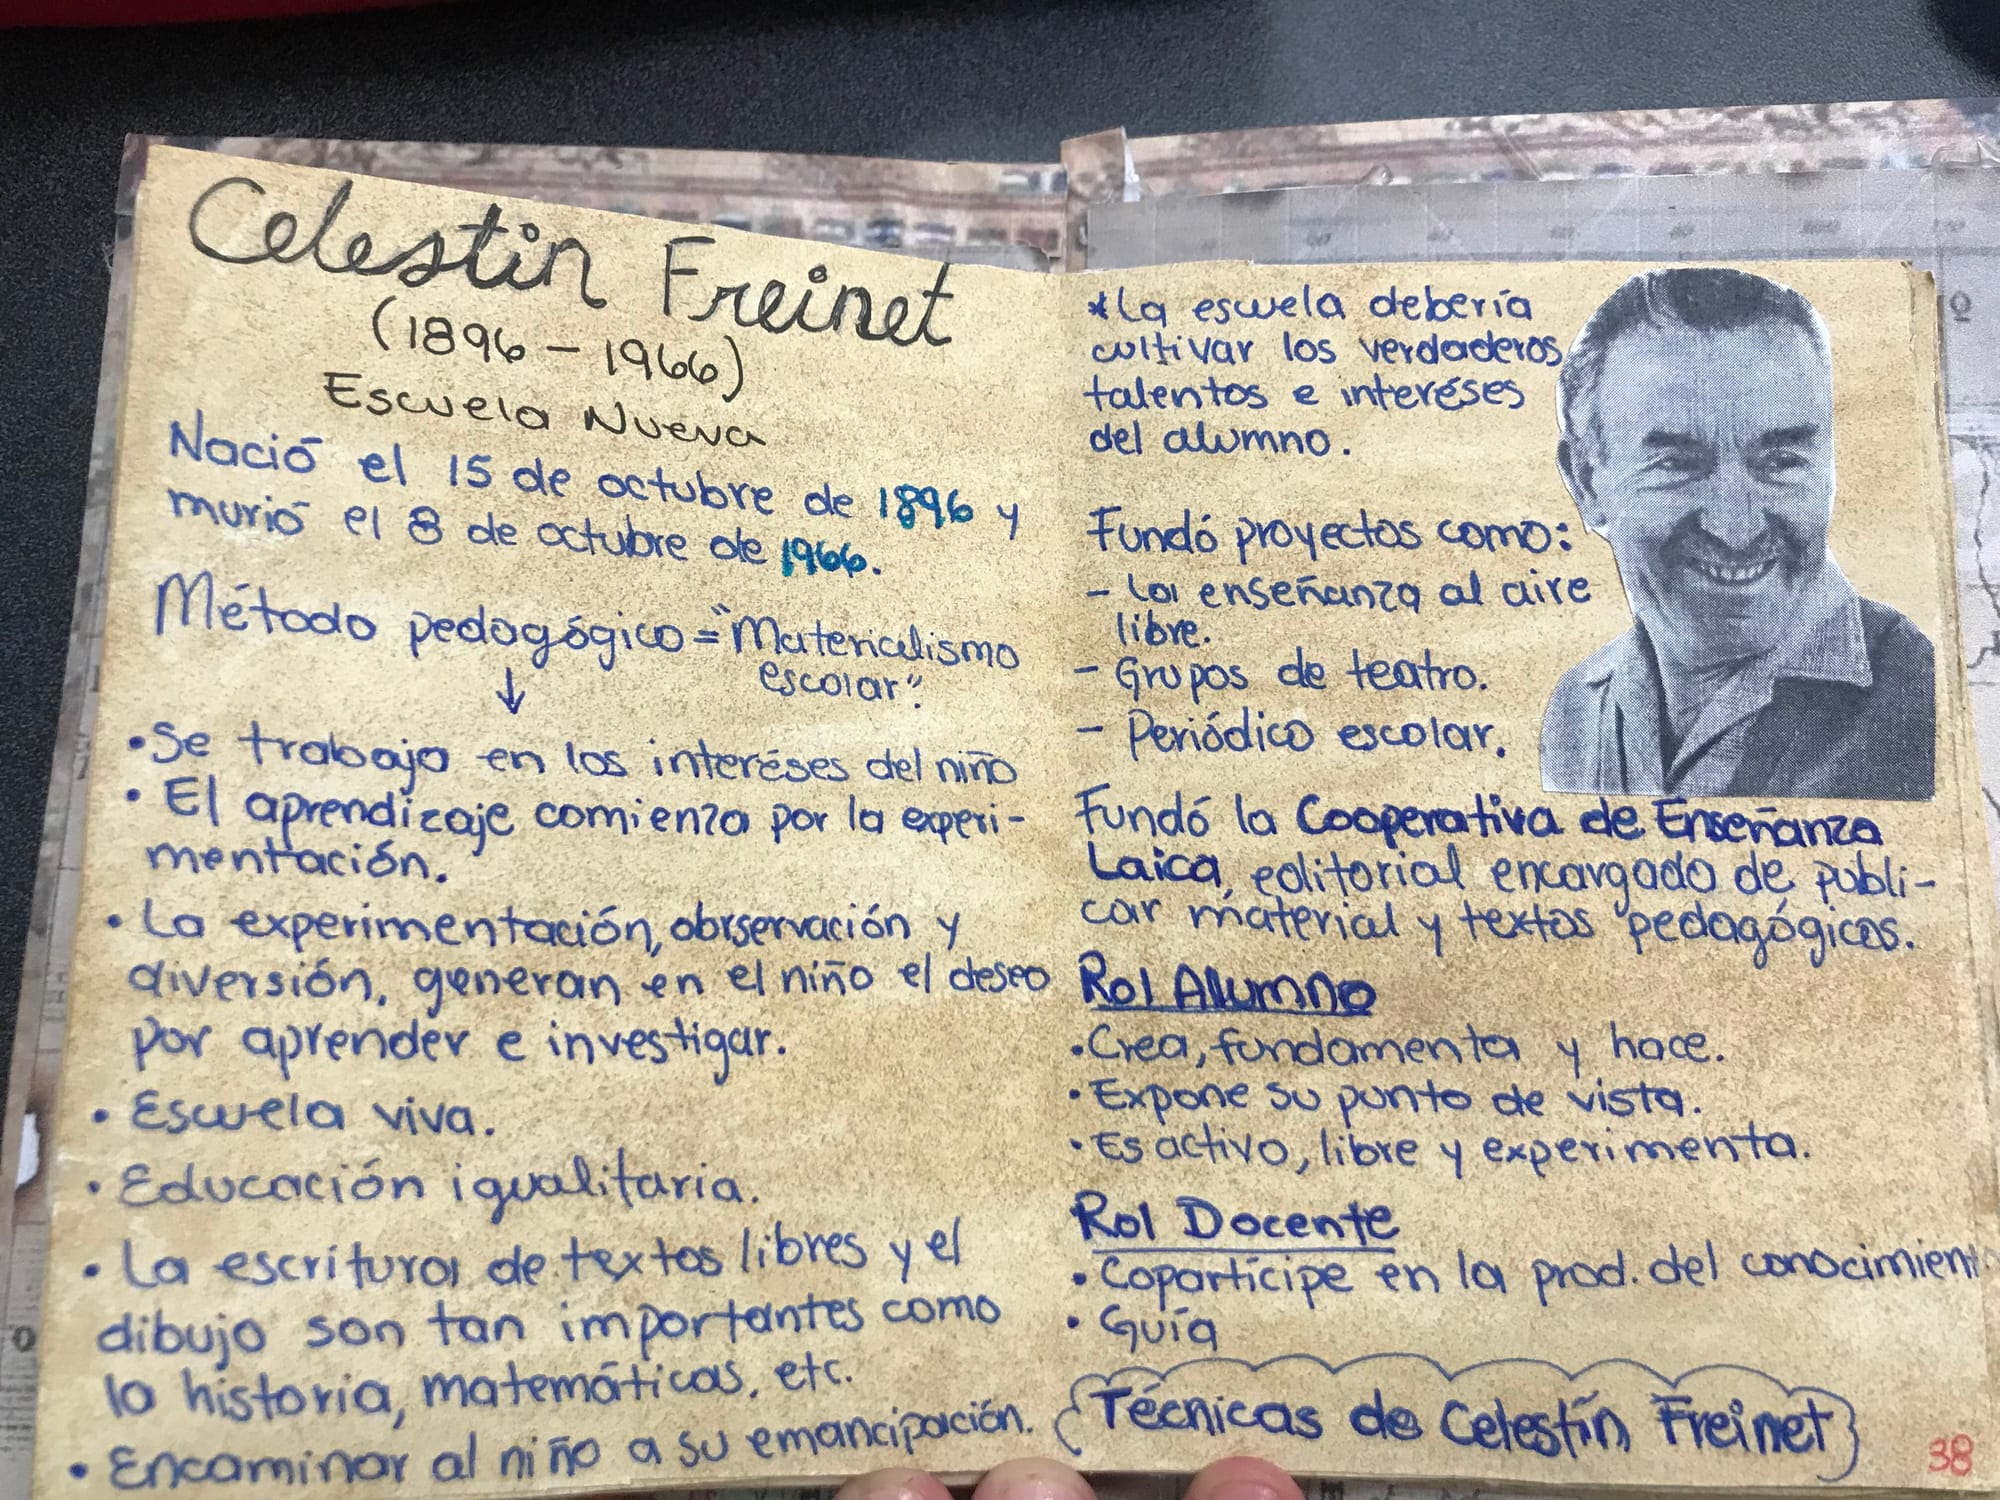 Celestin Freinet
(1896 - 1966)
Escuela Nueva
Nació el 15 de octubre de 1896 y
murió el 8 de octubre de 1966.
Método pedagógico = "Materialismo
escolar".
↓
• Se trabaja en los interéses del niño
• El aprendizaje comienza por la experi-
mentación.
• La experimentación, observación y
diversión, generan en el niño el deseo
por aprender e investigar.
• Escuela viva.
• Educación igualitaria.
• La escritura de textos libres y el
dibujo son tan importantes como
la historia, matemáticas, etc.
• Encaminar al niño a su emancipación.
*La escuela debería
cultivar los verdaderos
talentos e interéses
del alumno.
Fundó proyectos como:
- La enseñanza al aire
libre.
- Grupos de teatro.
- Periódico escolar.
Fundó la Cooperativa de Enseñanza
Laica, editorial encargado de publi-
car material y textos pedagógicos.
Rol Alumno
• Crea, fundamenta y hace.
• Expone su punto de vista.
• Es activo, libre y experimenta.
Rol Docente
• Copartícipe en la prod. del conocimient
• Guía
Técnicas de Celestín Freinet
38